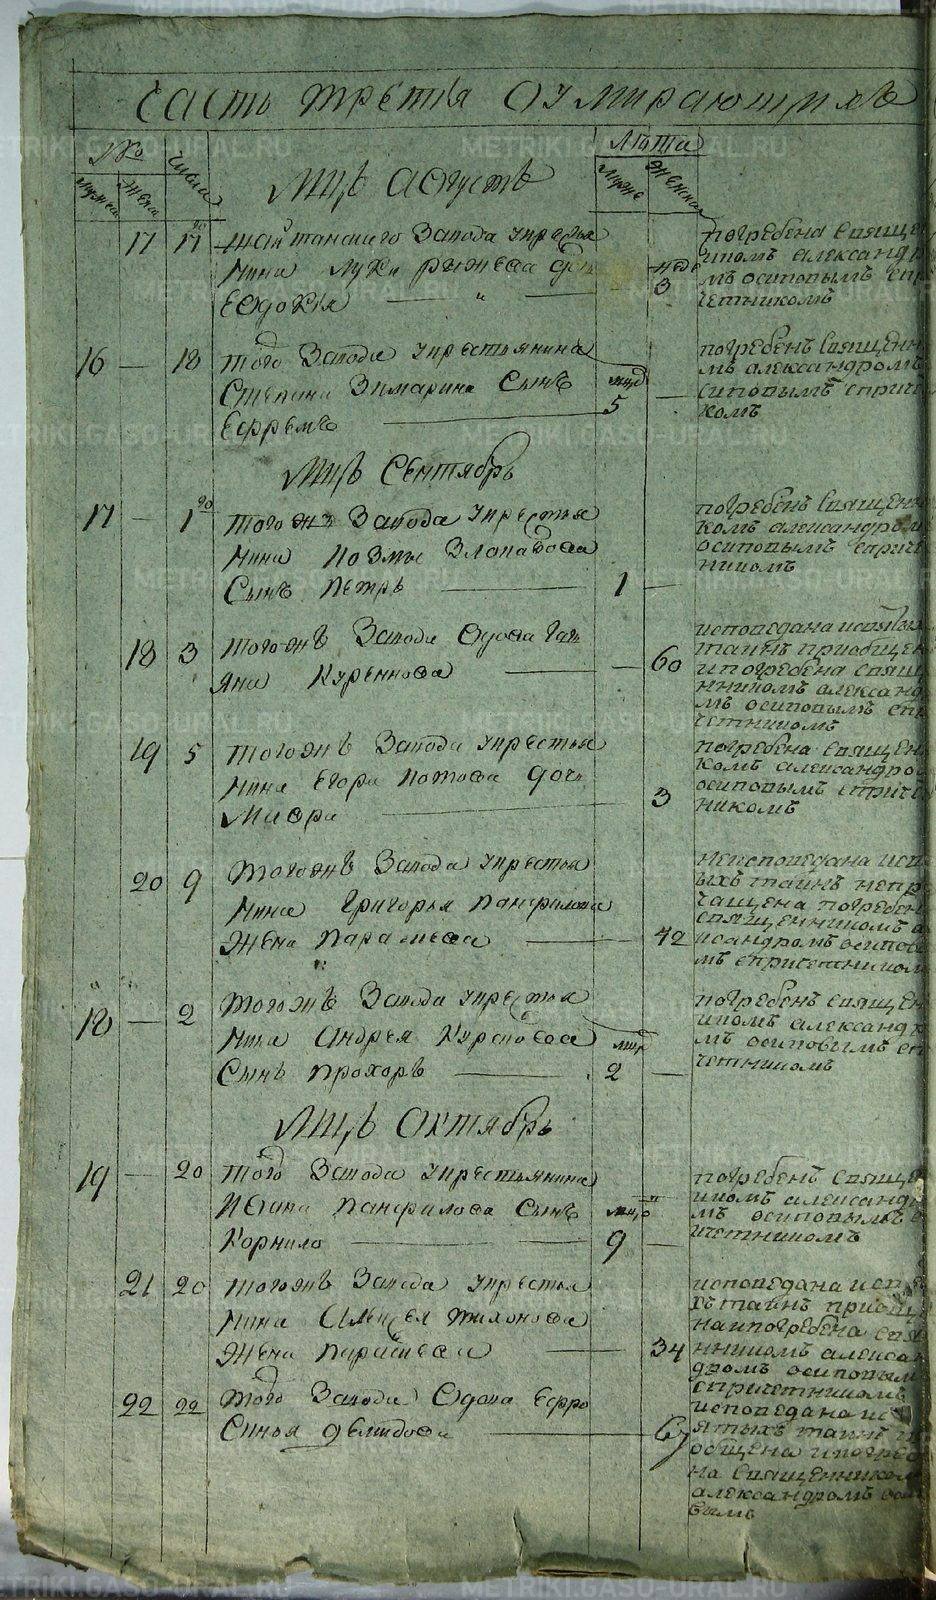 часть третiя о умирающихъ
No числа лѣта
мужеска женска мужес женска
Мцъ августъ
17 17го шайтанскаго завода крестья
нина Луки рыжева дочь недѣ 3
Евдокiя
погребена священ
никомъ александро
мъ осиповымъ спри
четникомъ
16 — 18 того завода крестьянина
Степана Зимарина Сынъ мцъ 5 —
Ефремъ
погребенъ священнико
мъ александромъ
осиповымъ спричетни
комъ
Мцъ Сентябрь
17 — 1го тогожъ завода крестья
нина
Сынъ петръ 1 —
погребенъ священни
комъ александромъ
осиповымъ спричет
никомъ
18 3 тогожъ завода вдова тать
яна — 60
исповедана
таинъ приобщена
и погребена свяще
нникомъ александро
мъ осиповымъ спри
четникомъ
19 5 тогожъ завода крестья
нина Егора потова дочь
Мавра 3
погребена священни
комъ александромъ
осиповымъ спричет
никомъ
20 9 тогожъ завода крестья
нина григорья панфилова
жена параскева 42
неисповедана
ыхъ таинъ непри
чащена погребена
священникомъ але
ксандромъ осиповы
мъ спричетникомъ
18 — 2 тогожъ завода крестья
нина андрея мцъ
Сынъ прохоръ 2 —
погребенъ священ
никомъ александро
мъ осиповымъ спри
четникомъ
Мцъ Октябрь
19 — 20 того завода крестьянина
Ивана панфилова Сынъ мцъ
Корнило 9 —
погребенъ священ
никомъ александро
мъ осиповымъ с
причетникомъ
21 20 тогожъ завода крестья
нина алексея
жена параскева 34
исповедана
хъ таинъ приобще
на и погребена свяще
нникомъ алексан
дромъ осиповымъ
спричетникомъ
22 22 того завода вдова Ефро
Синья демидова 67
исповедана и св
ятыхъ таинъ при
общена и погребе
на священникомъ
александромъ оси
повымъ
METRIKI.GASO-URAL.RU